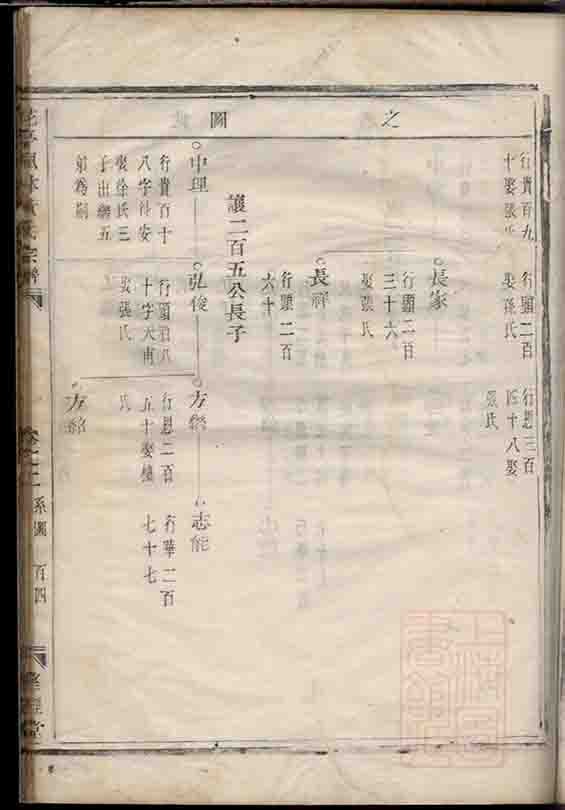 之圖
行貴百九
十娶張氏
行顯二百
娶孫氏
行恩三百
四十八娶
張氏
長家
行顯二百
三十六
娶張氏
長祥
行顯二百
六十
護二百五公長子
中理
行貴百十
八字付安
娶徐氏三
子出繼五
弟為嗣
弘俊
行顯百八
十字大甫
娶張氏
方
行恩二百
五十娶
氏
志能
行華二百
七十七
方
宗譜
卷之二
系圖
百四
堂
上海圖書館藏